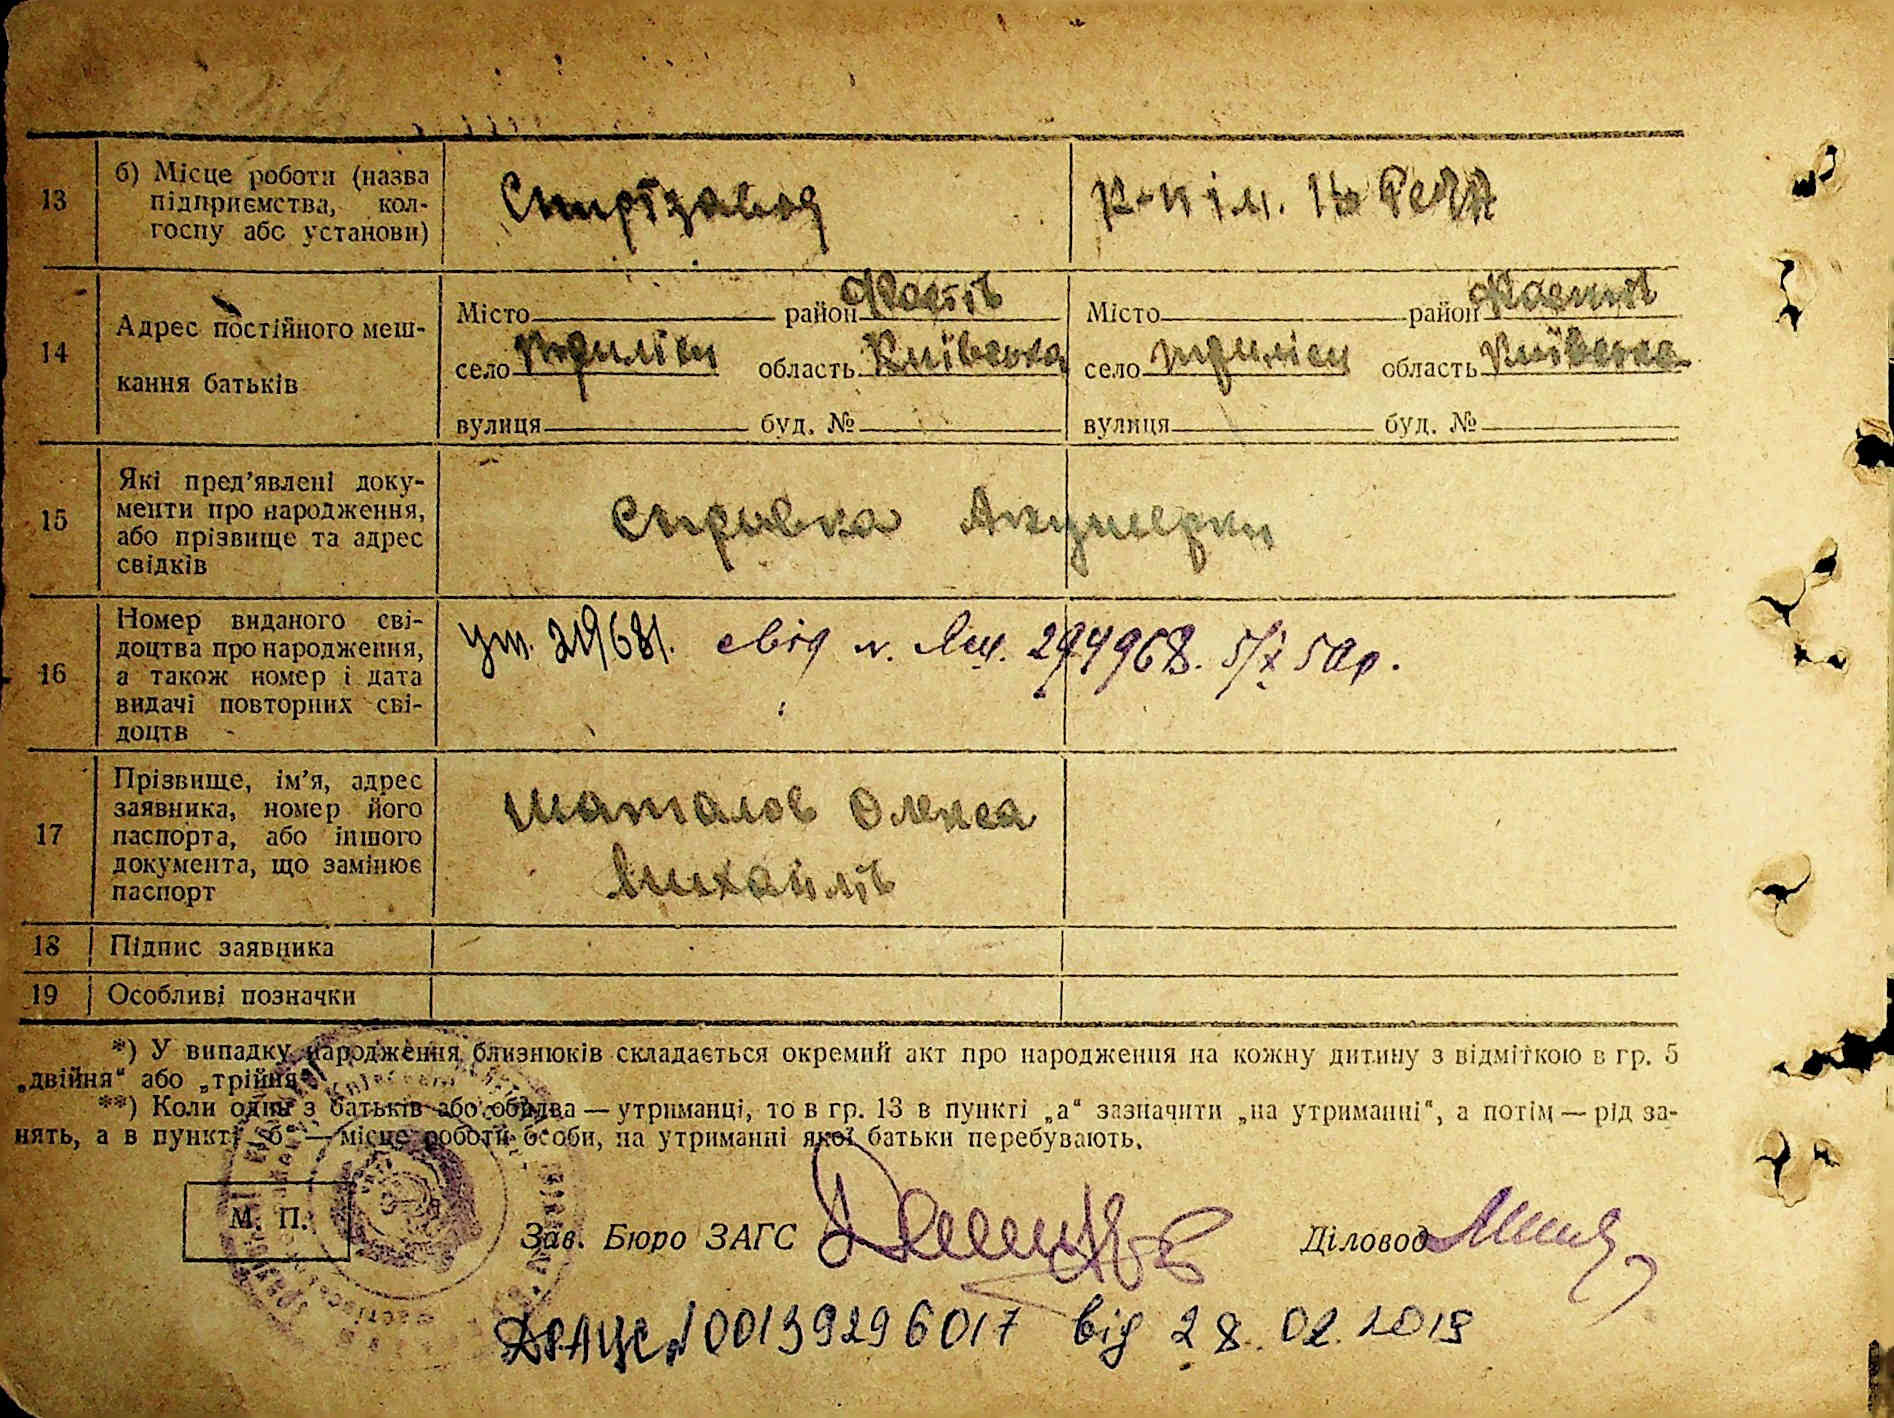 13
б) Місце роботи (назва
підприємства, кол-
госпу або установи)
Спиртзавод
К-п ім.
14
Адрес постійного меш-
кання батьків
Місто район Фастів
село область Київська
вулиця буд. №
Місто район Фастів
село область Київська
вулиця буд. №
15
Які пред’явлені доку-
менти про народження,
або прізвище та адрес
свідків
Справка Акушерки
16
Номер виданого сві-
доцтва про народження,
а також номер і дата
видачі повторних сві-
доцтв
219681. свід 294968. 5/X 50 р.
17
Прізвище, ім’я, адрес
заявника, номер його
паспорта, або іншого
документа, що замінює
паспорт
Шаталов Олекса
Михайлів
18
Підпис заявника
19
Особливі позначки
*) У випадку народження близнюків складається окремий акт про народження на кожну дитину з відміткою в гр. 5
„двійня“ або „трійня“
**) Коли один з батьків або обидва — утриманці, то в гр. 13 в пункті „а“ зазначити „на утриманні“, а потім — рід за-
нять, а в пункті „б“ — місце роботи особи, на утриманні якої батьки перебувають.
М. П.
Зав. Бюро ЗАГС
Діловод
ДРАЦС № 00139296017 від 28.02.2019